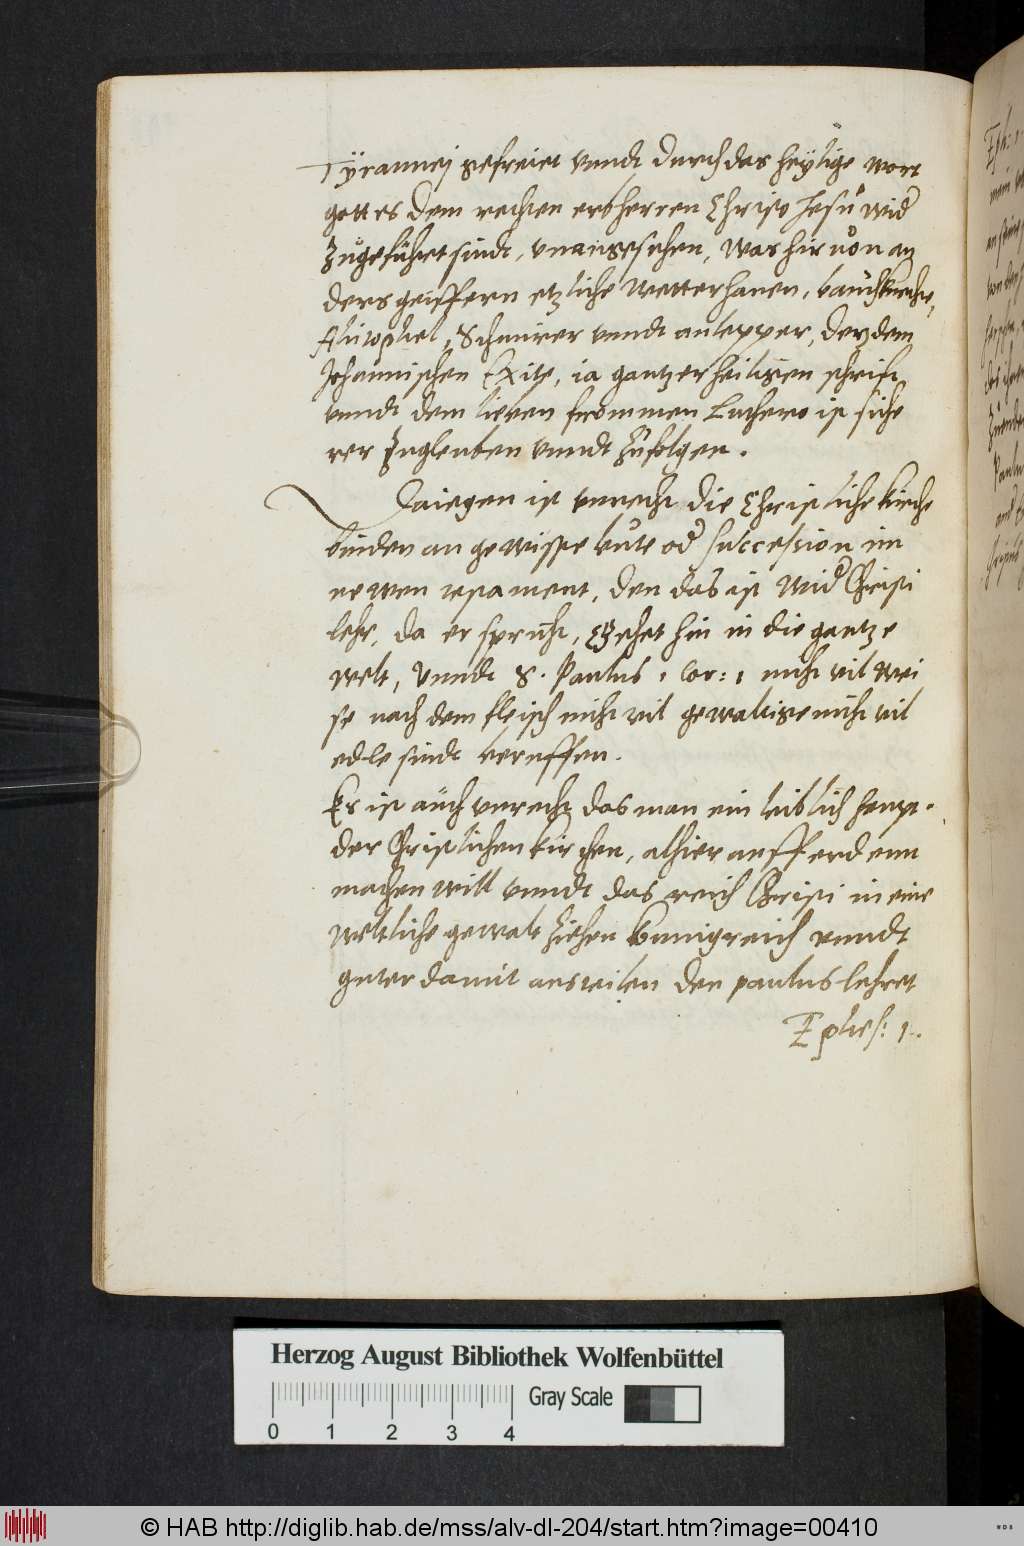 Tÿrannej gefreiet vnndt durch das heÿlige wort
gottes dem rechten erbherren Christo Jesu wider
Zugeführet sindt, vnangesehen, was hir von an
ders geiffern etzliche Wetterhanen, bauchknechte,
Ahitophel, Schmirer vnndt anlepper, den dem
Johannischen Exite, ia gantzer heiligen schrift
vnndt dem lieben frommen Luthero ist siche
rer Zuglenben vnndt Zufolgen.
Daiegen ist vnrecht die Christliche kirche
binden an gewisse leute oder succession im
newen testament, den das ist wider Christi
lehr, da er spricht, Gehet hin in die gantze
welt, vnndt S. Paulus 1 Cor: 1 nicht vil wei
se nach dem fleisch nicht vil gewaltige nicht vil
edle sindt beruffen.
Es ist auch vnrecht das man ein leiblich heupt
der Christlichen kirchen, alhier auff erdenn
machen will vnndt das reich Christi in eine
weltliche gewalt ziehen kunigreich vnndt
guter damit austeilen den paulus lehret
Ephes: 1.
Herzog August Bibliothek Wolfenbüttel
Gray Scale
0 1 2 3 4
© HAB http://diglib.hab.de/mss/alv-dl-204/start.htm?image=00410